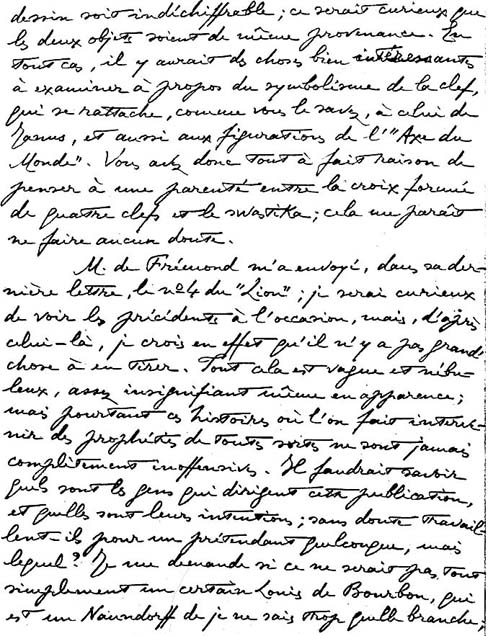 dessin soit indéchiffrable ; ce serait curieux que
les deux objets soient de même provenance. En
tout cas, il y aurait des choses bien intéressantes
à examiner à propos du symbolisme de la clef,
qui se rattache, comme vous le savez, à celui de
Janus, et aussi aux figurations de l'"Axe du
Monde". Vous avez donc tout à fait raison de
penser à une parenté entre la croix formée
de quatre clefs et le swastika ; cela me paraît
ne faire aucun doute.
M. de Frémond m'a envoyé, dans sa der-
nière lettre, le nº 4 du "Lion" ; je serai curieux
de voir les précédents à l'occasion, mais, d'après
celui-là, je crois en effet qu'il n'y a pas grand'
chose à en tirer. Tout cela est vague et nébu-
leux, assez insignifiant même en apparence ;
mais pourtant ces histoires où l'on fait interve-
nir des prophéties de toutes sortes ne sont jamais
complètement inoffensives. Il faudrait savoir
quels sont les gens qui dirigent cette publication,
et quelles sont leurs intentions ; sans doute travail-
lent-ils pour un prétendant quelconque, mais
lequel ? Je me demande si ce ne serait pas tout
simplement un certain Louis de Bourbon, qui
est un Naundorff de je ne sais trop quelle branche,